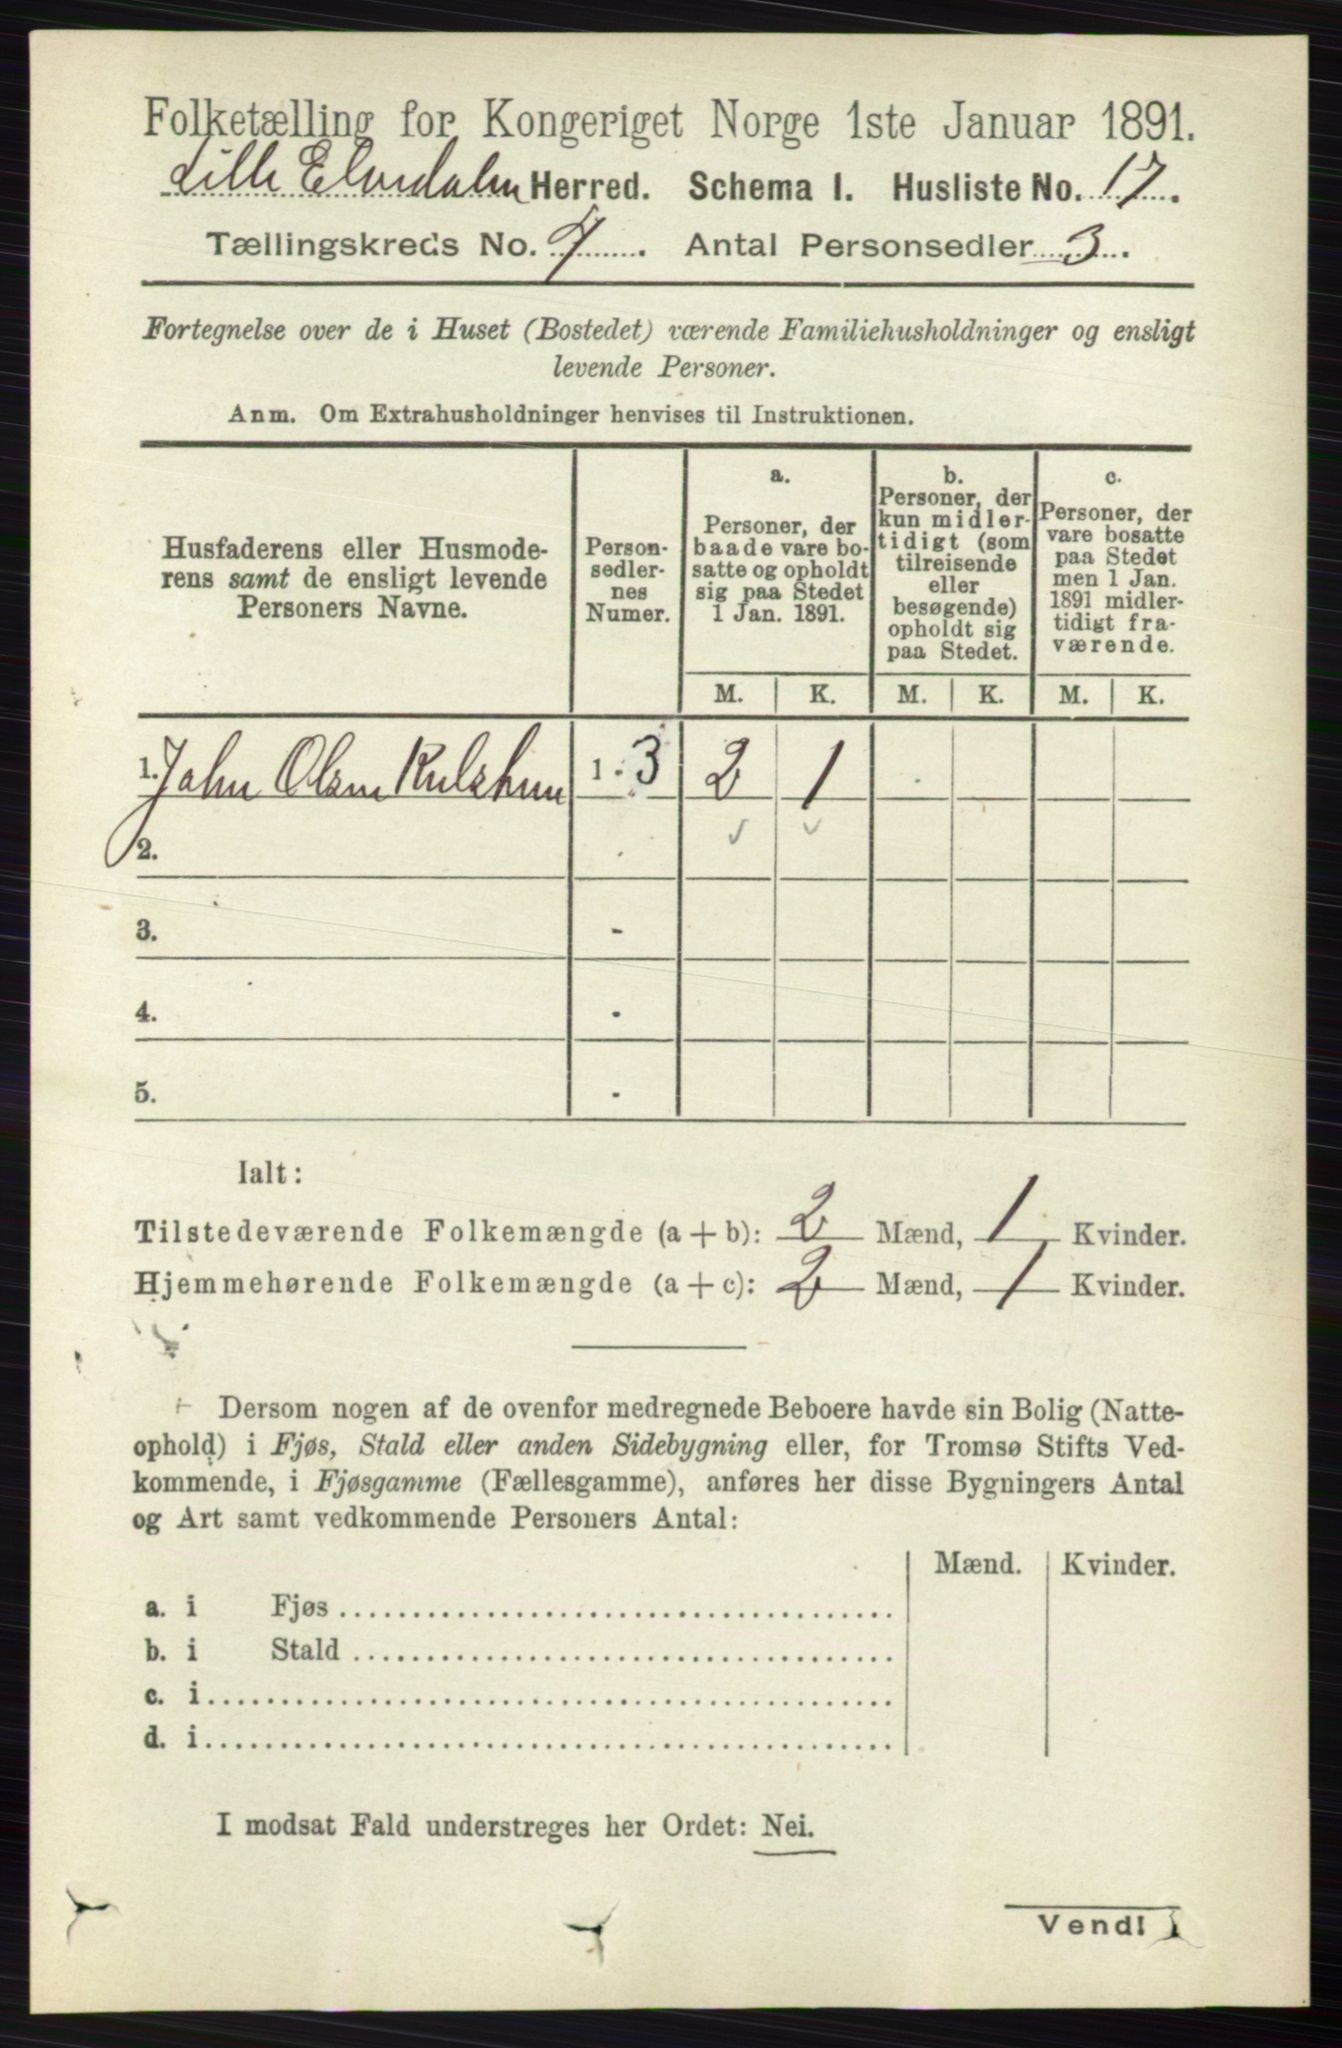 Folketælling for Kongeriget Norge 1ste Januar 1891.
Lille Elvedalen Herred. Schema I. Husliste No. 17.
Tællingskreds No. 7. Antal Personsedler 3.
Fortegnelse over de i Huset (Bostedet) værende Familiehusholdninger og ensligt
levende Personer.
Anm. Om Extrahusholdninger henvises til Instruktionen.
Husfaderens eller Husmode-
rens samt de ensligt levende
Personers Navne.
Person-
sedler-
nes
Numer.
a.
Personer, der
baade vare bo-
satte og opholdt
sig paa Stedet
1 Jan. 1891.
b.
Personer, der
kun midler-
tidigt (som
tilreisende
eller
besøgende)
opholdt sig
paa Stedet.
c.
Personer, der
vare bosatte
paa Stedet
men 1 Jan.
1891 midler-
tidigt fra-
værende.
M. K. M. K. M. K.
1. John Olsen 1 - 3 2 1
2. -
3. -
4. -
5. -
Ialt:
Tilstedeværende Folkemængde (a + b): 2 Mænd, 1 Kvinder.
Hjemmehørende Folkemængde (a + c): 2 Mænd, 1 Kvinder.
Dersom nogen af de ovenfor medregnede Beboere havde sin Bolig (Natte-
ophold) i Fjøs, Stald eller anden Sidebygning eller, for Tromsø Stifts Ved-
kommende, i Fjøsgamme (Fællesgamme), anføres her disse Bygningers Antal
og Art samt vedkommende Personers Antal:
Mænd. Kvinder.
a. i Fjøs
b. i Stald
c. i
d. i
I modsat Fald understreges her Ordet: Nei.
Vend!